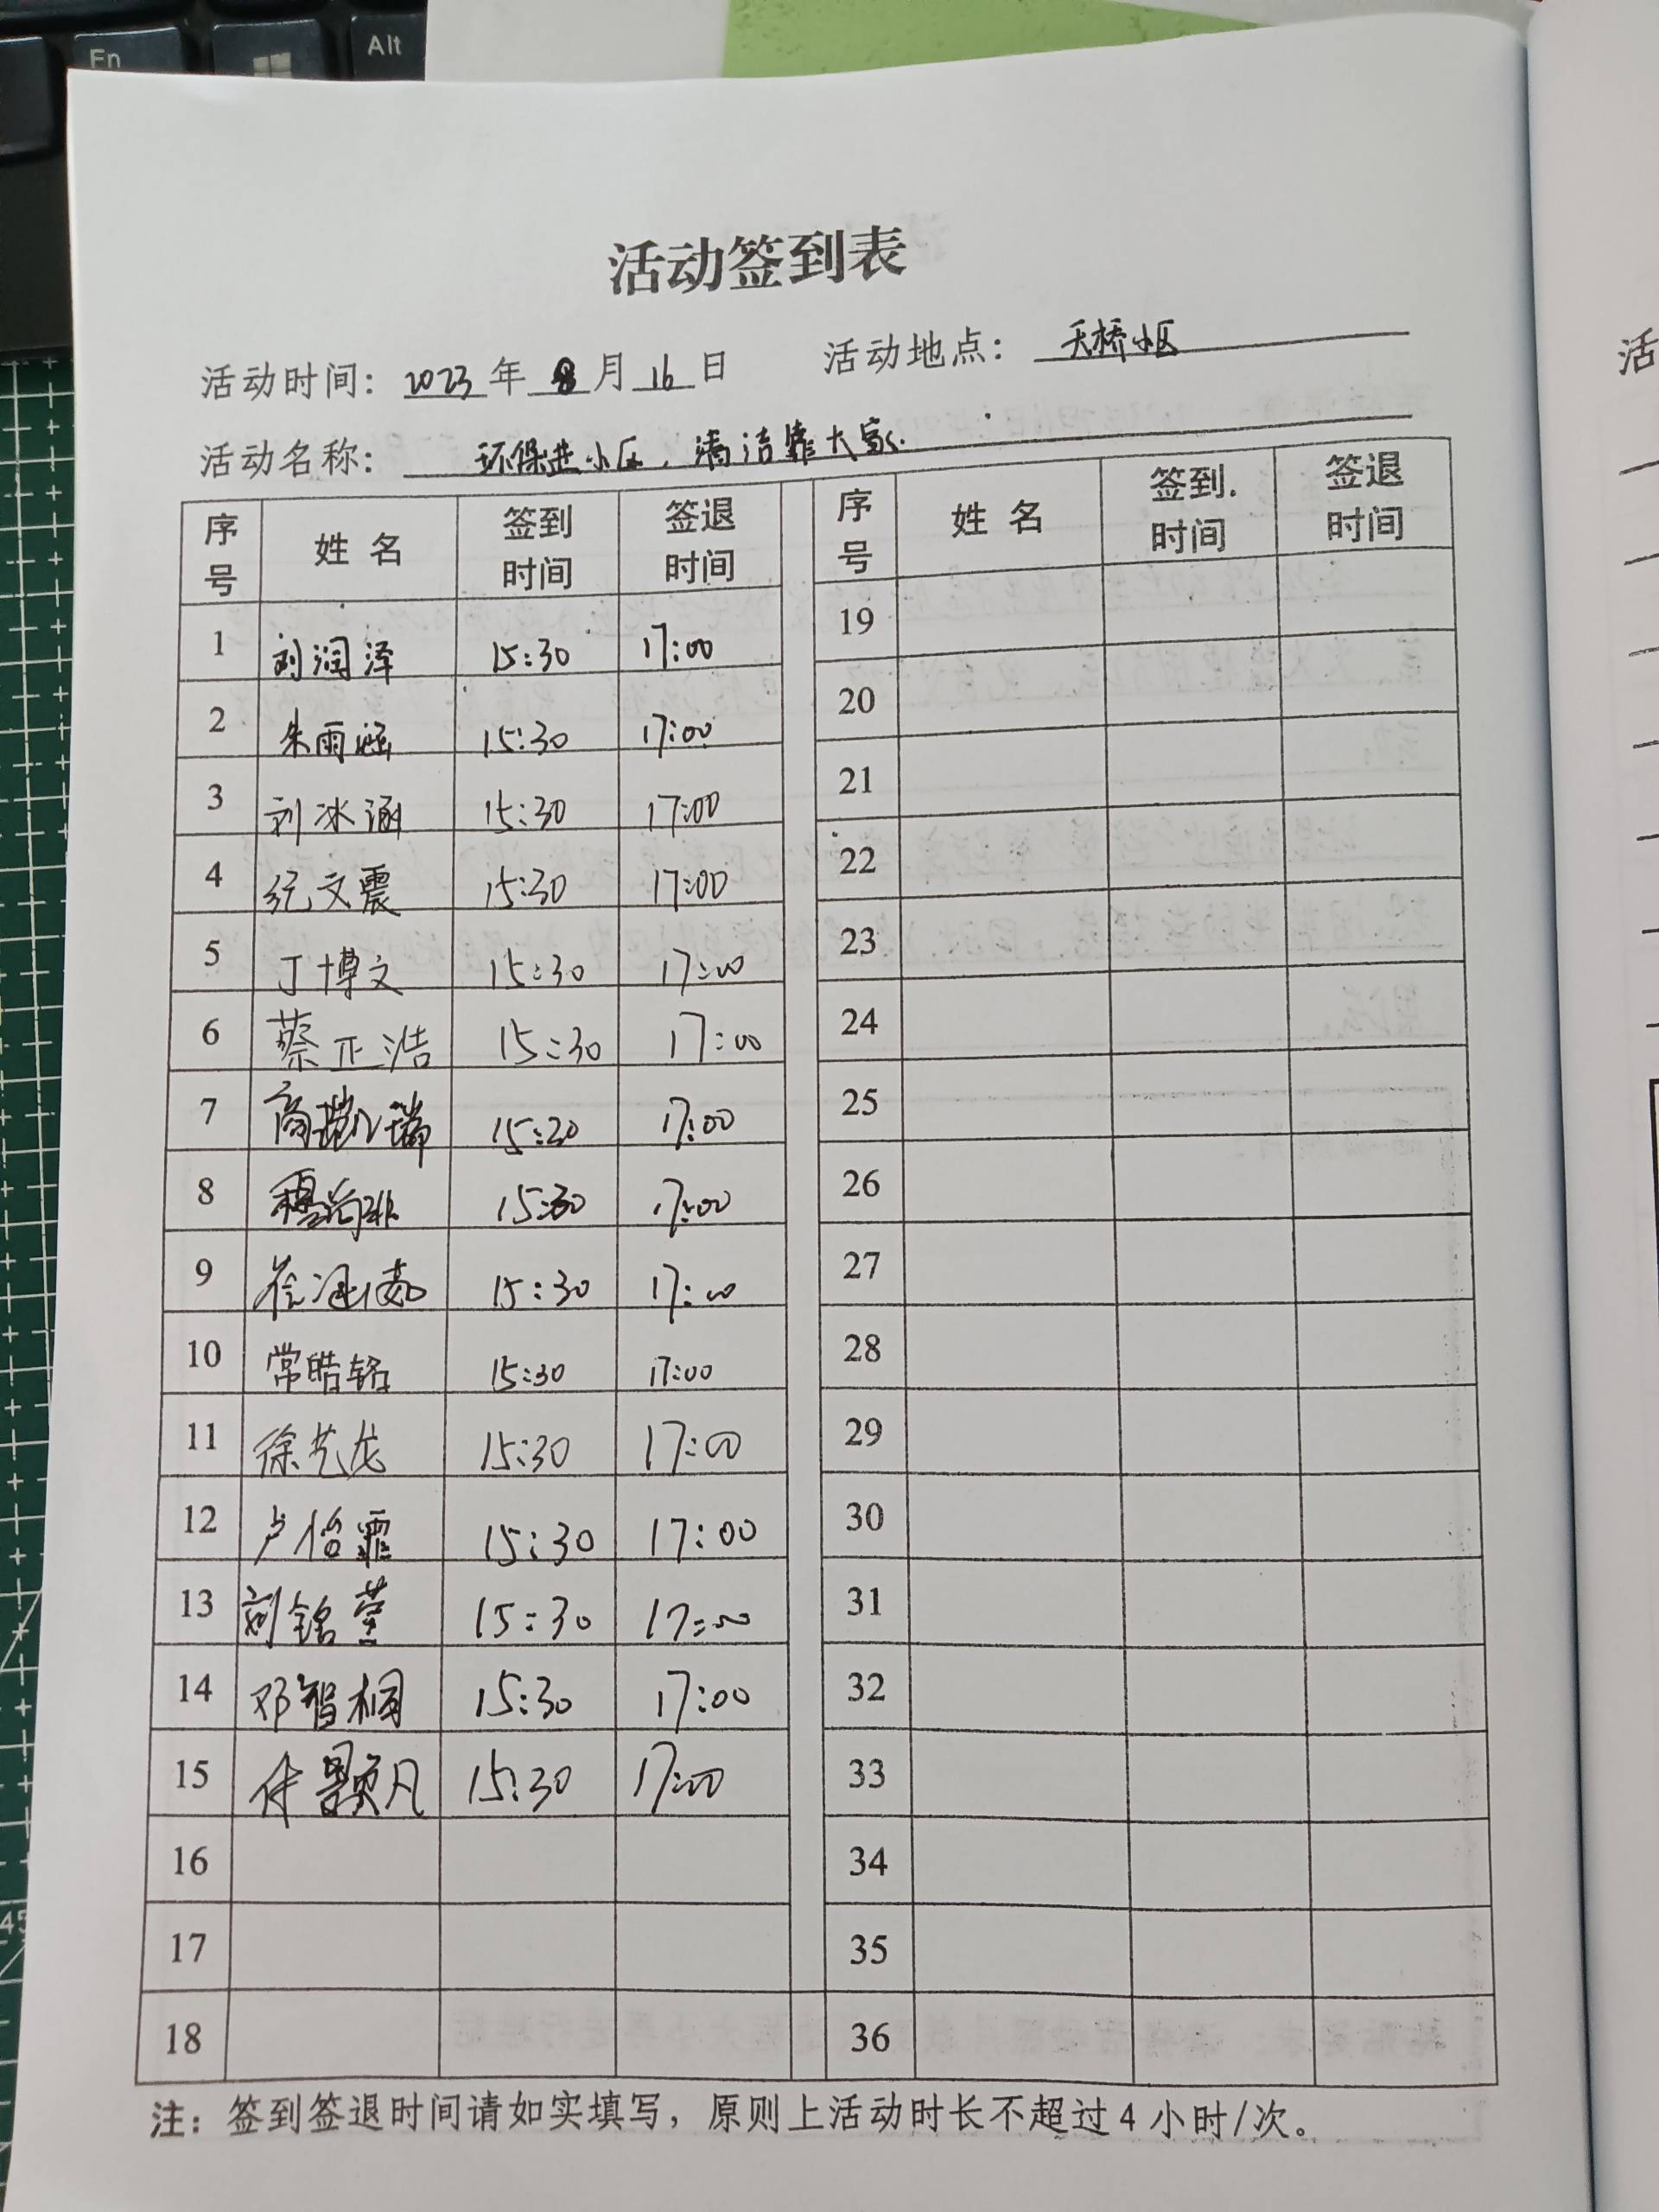 Fn
Alt
活动签到表
活动时间：2023年8月16日 活动地点：天桥小区
活动名称：环保进小区，清洁靠大家.
序号 姓名 签到时间 签退时间 序号 姓名 签到时间 签退时间
1 刘润泽 15:30 17:00 19
2 朱雨涵 15:30 17:00 20
3 刘冰涵 15:30 17:00 21
4 文震 15:30 17:00 22
5 丁博文 15:30 17:00 23
6 蔡正浩 15:30 17:00 24
7 商 瑞 15:30 17:00 25
8 15:30 17:00 26
9 15:30 17:00 27
10 常皓铭 15:30 17:00 28
11 徐艺龙 15:30 17:00 29
12 卢怡霏 15:30 17:00 30
13 刘铭萱 15:30 17:00 31
14 邓智桐 15:30 17:00 32
15 凡 15:30 17:00 33
16 34
17 35
18 36
注：签到签退时间请如实填写，原则上活动时长不超过4小时/次。
活
45